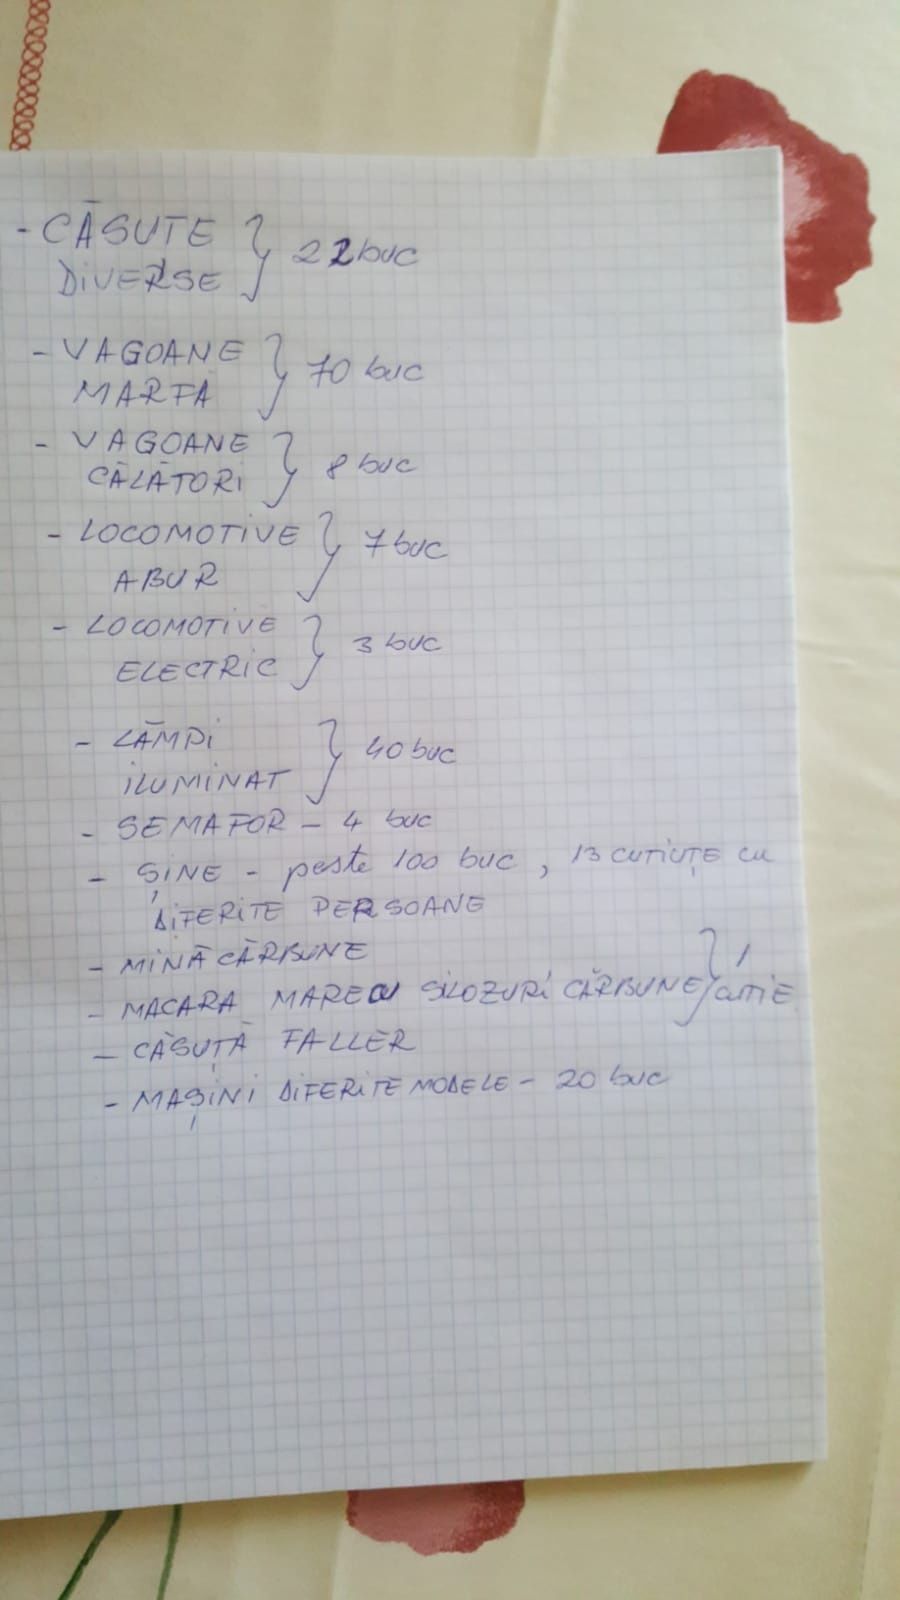 - CĂSUTE } 22 buc
DIVERSE
- VAGOANE } 70 buc
MARFĂ
- VAGOANE } 8 buc
CĂLĂTORI
- LOCOMOTIVE } 7 buc
ABUR
- LOCOMOTIVE } 3 buc
ELECTRIC
- LĂMPI } 40 buc
ILUMINAT
- SEMAFOR - 4 buc
- ȘINE - peste 100 buc, 13 CUTIUȚE CU
DIFERITE PERSOANE
- MINĂ CĂRBUNE } 1
- MACARA MARE CU SILOZURI CĂRBUNE } CUTIE
- CĂSUȚĂ FALLER
- MAȘINI DIFERITE MODELE - 20 buc